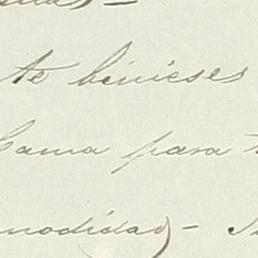 te binieses
Cama para
modidad -